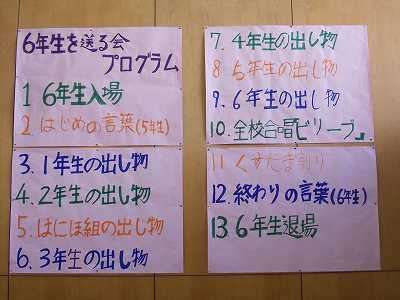 6年生を送る会
プログラム
1 6年生入場
2 はじめの言葉(5年生)
3. 1年生の出し物
4. 2年生の出し物
5. はにほ組の出し物
6. 3年生の出し物
7. 4年生の出し物
8 5年生の出し物
9. 6年生の出し物
10. 全校合唱「ビリーブ」
11 くすだま割り
12. 終わりの言葉(6年生)
13. 6年生退場